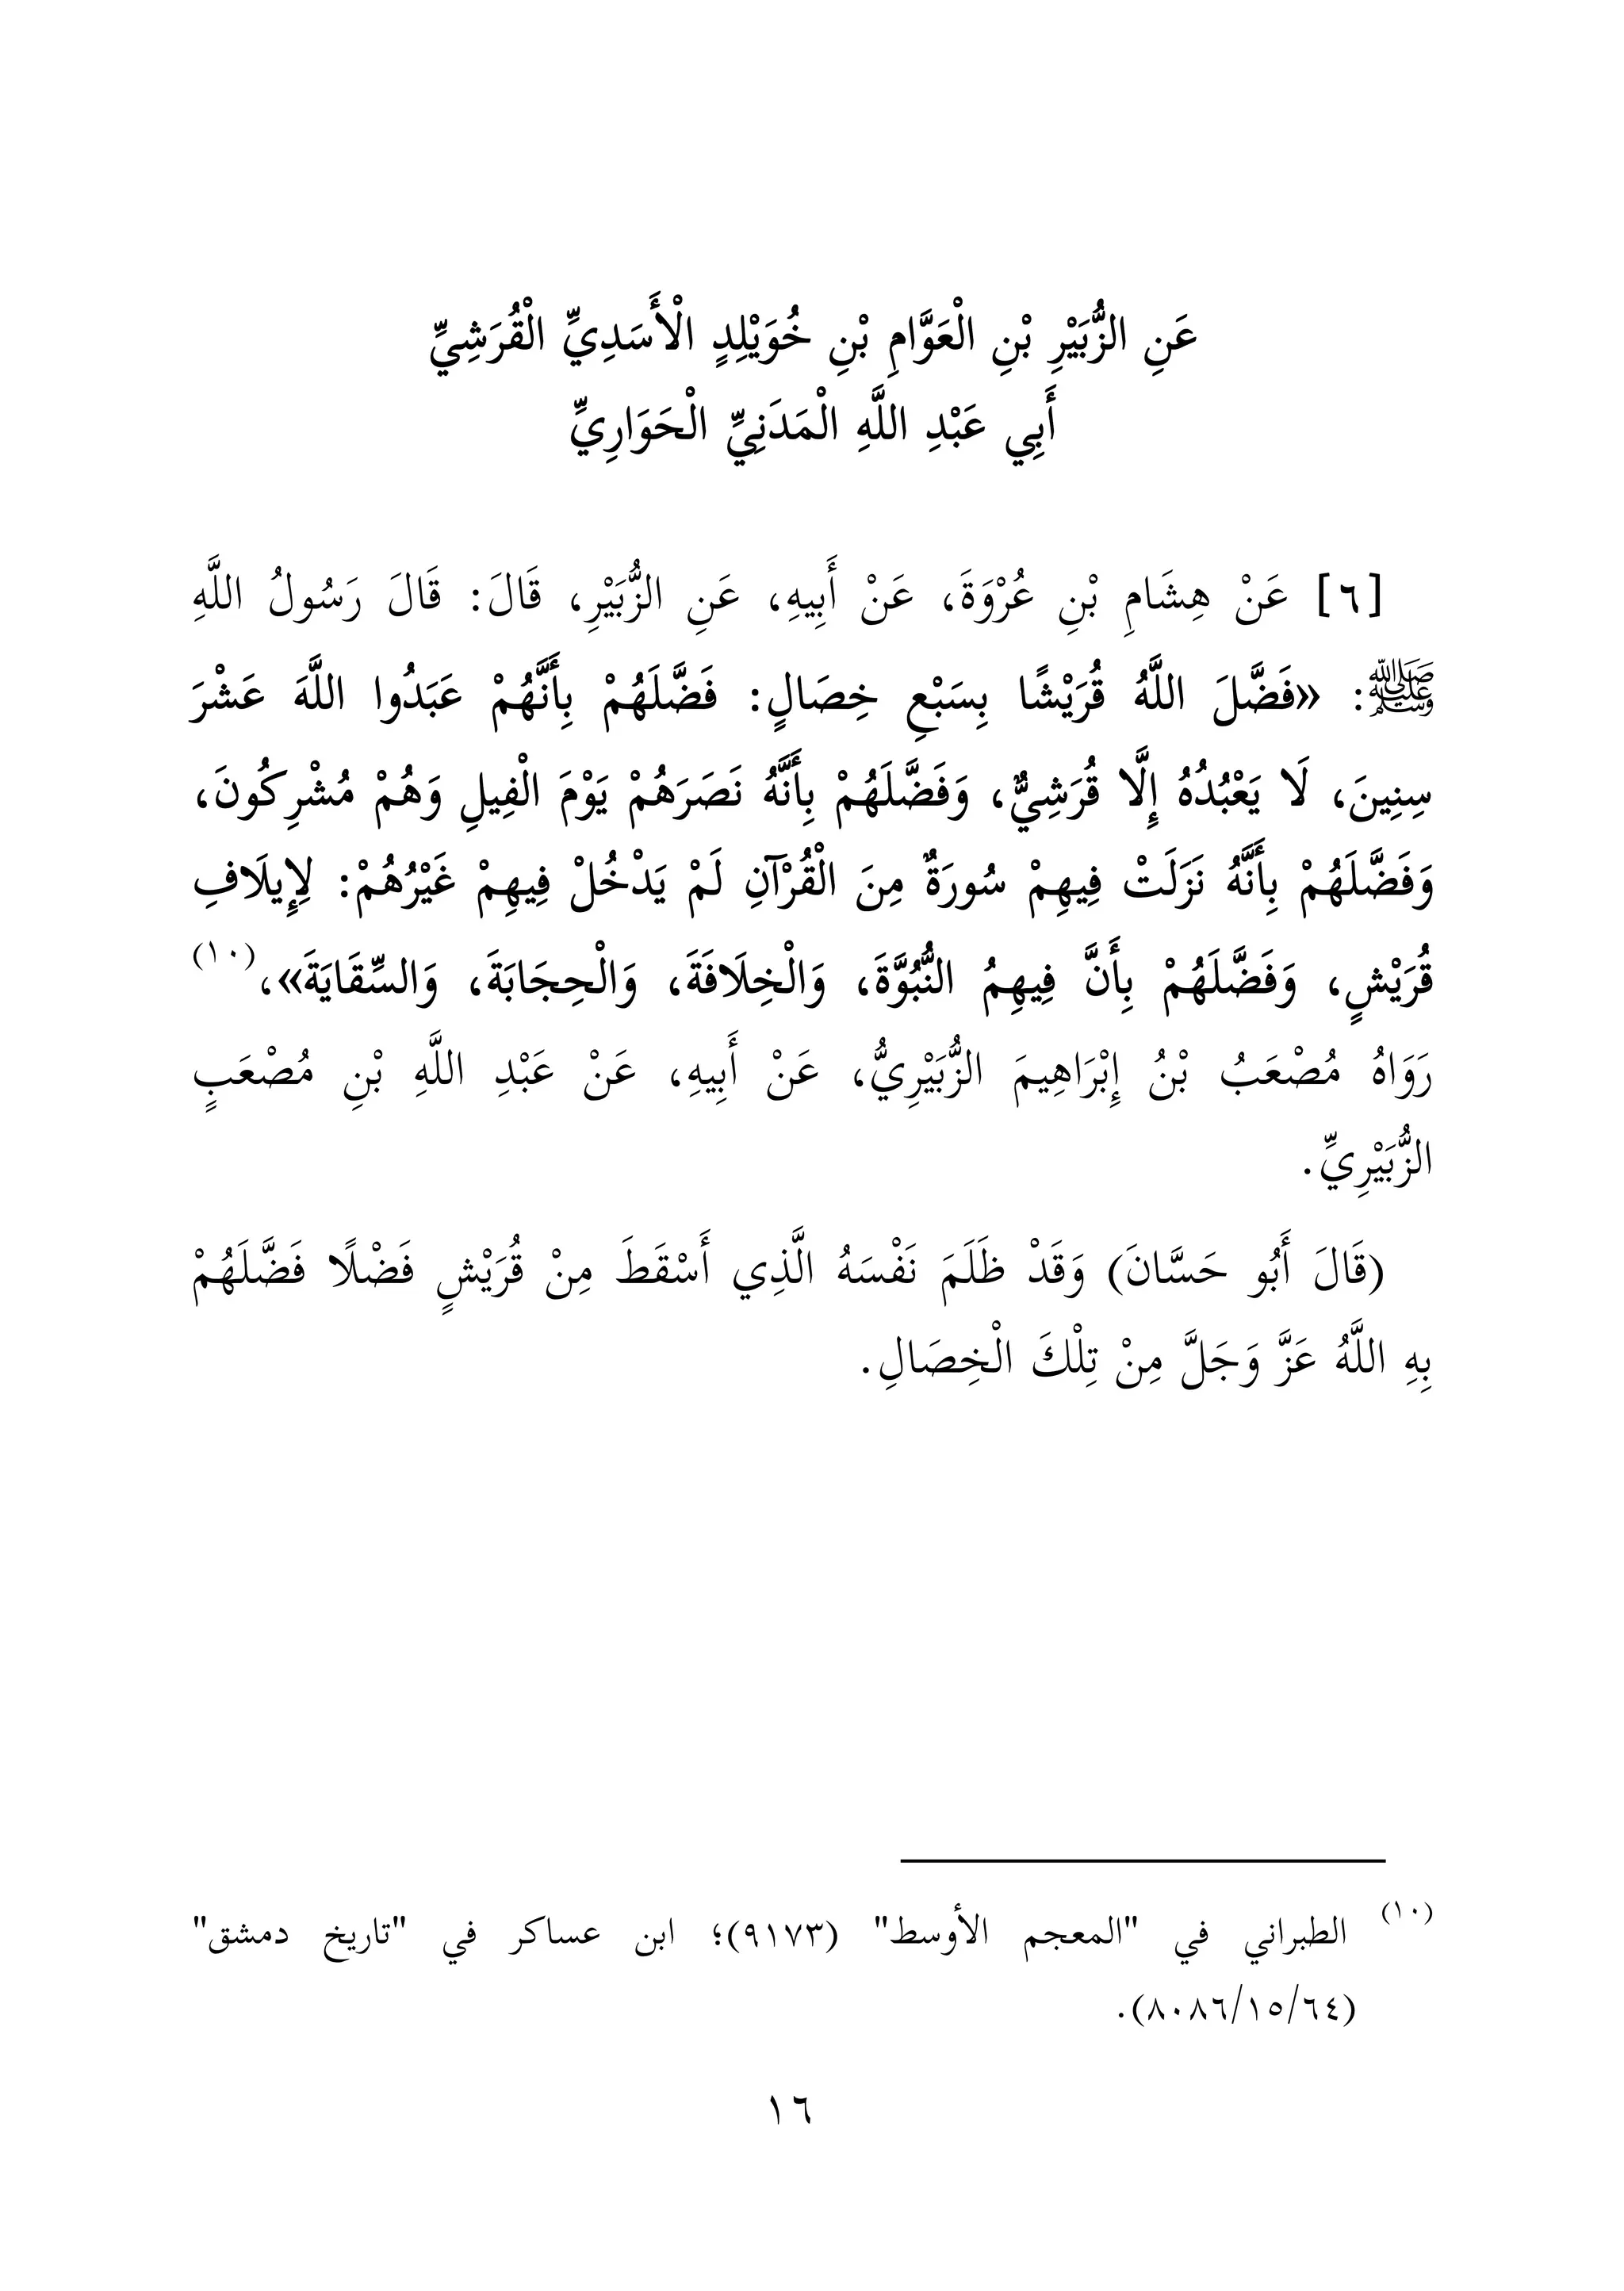 عَنِ الزُّبَيْرِ بْنِ الْعَوَّامِ بْنِ خُوَيْلِدٍ الْأَسَدِيِّ الْقُرَشِيِّ
أَبِي عَبْدِ اللَّهِ الْمَدَنِيِّ الْحَوَارِيِّ
[٦] عَنْ هِشَامِ بْنِ عُرْوَةَ، عَنْ أَبِيهِ، عَنِ الزُّبَيْرِ، قَالَ: قَالَ رَسُولُ اللَّهِ
ﷺ: «فَضَّلَ اللَّهُ قُرَيْشًا بِسَبْعِ خِصَالٍ: فَضَّلَهُمْ بِأَنَّهُمْ عَبَدُوا اللَّهَ عَشْرَ
سِنِينَ، لَا يَعْبُدُهُ إِلَّا قُرَشِيٌّ، وَفَضَّلَهُمْ بِأَنَّهُ نَصَرَهُمْ يَوْمَ الْفِيلِ وَهُمْ مُشْرِكُونَ،
وَفَضَّلَهُمْ بِأَنَّهُ نَزَلَتْ فِيهِمْ سُورَةٌ مِنَ الْقُرْآنِ لَمْ يَدْخُلْ فِيهِمْ غَيْرُهُمْ: لِإِيلَافِ
قُرَيْشٍ، وَفَضَّلَهُمْ بِأَنَّ فِيهِمُ النُّبُوَّةَ، وَالْخِلَافَةَ، وَالْحِجَابَةَ، وَالسِّقَايَةَ»،(١٠)
رَوَاهُ مُصْعَبُ بْنُ إِبْرَاهِيمَ الزُّبَيْرِيُّ، عَنْ أَبِيهِ، عَنْ عَبْدِ اللَّهِ بْنِ مُصْعَبٍ
الزُّبَيْرِيِّ.
(قَالَ أَبُو حَسَّانَ) وَقَدْ ظَلَمَ نَفْسَهُ الَّذِي أَسْقَطَ مِنْ قُرَيْشٍ فَضْلًا فَضَّلَهُمْ
بِهِ اللَّهُ عَزَّ وَجَلَّ مِنْ تِلْكَ الْخِصَالِ.
(١٠) الطبراني في "المعجم الأوسط" (٩١٧٣)؛ ابن عساكر في "تاريخ دمشق"
(٦٤/١٥/٨٠٨٦).
١٦